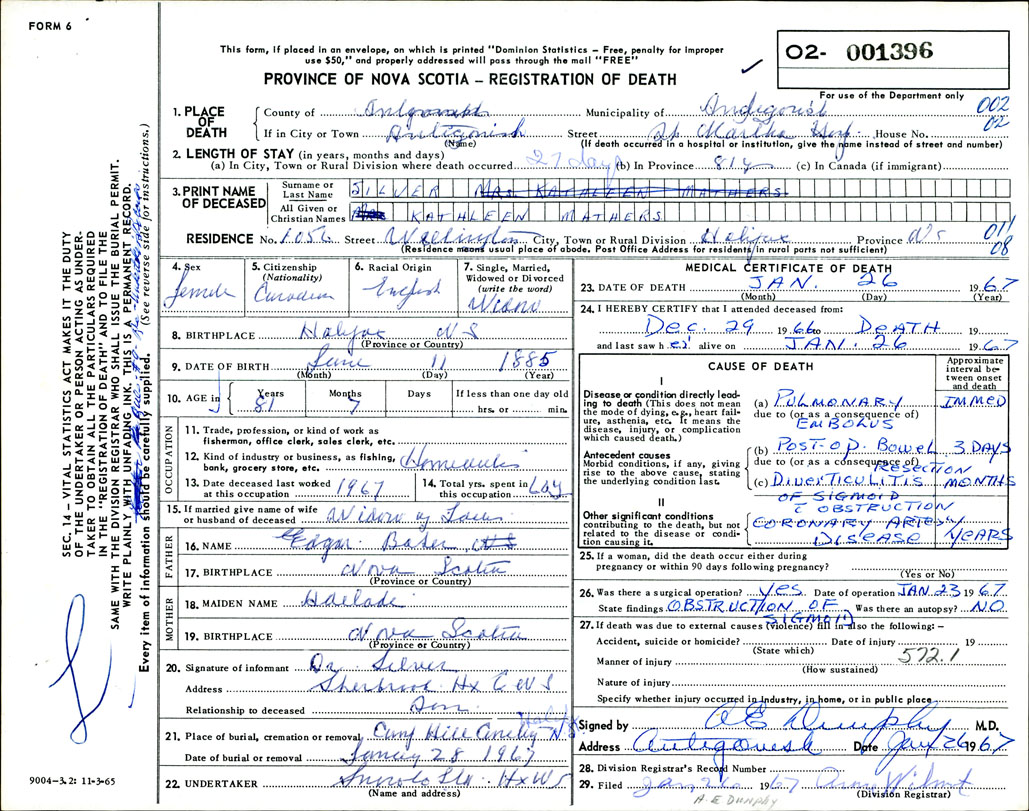 FORM 6
This form, if placed in an envelope, on which is printed "Dominion Statistics – Free, penalty for improper
use $50," and properly addressed will pass through the mail "FREE"
PROVINCE OF NOVA SCOTIA – REGISTRATION OF DEATH
02- 001396
For use of the Department only
002
02
1. PLACE OF DEATH
County of Antigonish Municipality of Antigonish
If in City or Town Antigonish Street St. Martha Hosp House No.
(Name) (If death occurred in a hospital or institution, give the name instead of street and number)
2. LENGTH OF STAY (in years, months and days)
(a) In City, Town or Rural Division where death occurred 27 days (b) In Province 81 y (c) In Canada (if immigrant)
3. PRINT NAME OF DECEASED
Surname or Last Name SILVER MRS KATHLEEN MATHERS
All Given or Christian Names MRS KATHLEEN MATHERS
RESIDENCE No. 1056 Street Wellington City, Town or Rural Division Halifax Province NS
(Residence means usual place of abode. Post Office Address for residents in rural parts not sufficient)
011
08
4. Sex
Female
5. Citizenship (Nationality)
Canadian
6. Racial Origin
English
7. Single, Married, Widowed or Divorced (write the word)
Widow
8. BIRTHPLACE Halifax NS
(Province or Country)
9. DATE OF BIRTH June 11 1885
(Month) (Day) (Year)
10. AGE in Years Months Days If less than one day old
81 7 hrs. or min.
OCCUPATION
11. Trade, profession, or kind of work as fisherman, office clerk, sales clerk, etc.
12. Kind of industry or business, as fishing, bank, grocery store, etc. Homewife
13. Date deceased last worked at this occupation 1967
14. Total yrs. spent in this occupation
15. If married give name of wife or husband of deceased Widow of
FATHER
16. NAME Edgar Baker NS
17. BIRTHPLACE Nova Scotia
(Province or Country)
MOTHER
18. MAIDEN NAME
19. BIRTHPLACE Nova Scotia
(Province or Country)
20. Signature of informant Dr Silver
Address Sherbrooke Hx C NS
Relationship to deceased Son
21. Place of burial, cremation or removal Camp Hill Cemetery Halifax NS
Date of burial or removal January 28 1967
22. UNDERTAKER Snows Ltd. Hx NS
(Name and address)
MEDICAL CERTIFICATE OF DEATH
23. DATE OF DEATH JAN. 26 1967
(Month) (Day) (Year)
24. I HEREBY CERTIFY that I attended deceased from:
Dec. 29 1966 to DEATH 19
and last saw her alive on JAN. 26 1967
CAUSE OF DEATH
Approximate interval between onset and death
I
Disease or condition directly leading to death (This does not mean the mode of dying, e.g., heart failure, asthenia, etc. It means the disease, injury, or complication which caused death.)
(a) PULMONARY IMMED
due to (or as a consequence of
EMBOLUS
Antecedent causes
Morbid conditions, if any, giving rise to the above cause, stating the underlying condition last.
(b) POST-OP. BOWEL 3 DAYS
due to (or as a consequence of
RESECTION
(c) DIVERTICULITIS MONTHS
OF SIGMOID
C OBSTRUCTION
II
Other significant conditions
contributing to the death, but not related to the disease or condition causing it.
CORONARY ARTERY YEARS
DISEASE
25. If a woman, did the death occur either during
pregnancy or within 90 days following pregnancy?
(Yes or No)
26. Was there a surgical operation? YES. Date of operation JAN. 23 1967
State findings OBSTRUCTION OF Was there an autopsy? NO
SIGMOID
27. If death was due to external causes (violence) fill in also the following: –
Accident, suicide or homicide? Date of injury 19
(State which)
Manner of injury 572.1
(How sustained)
Nature of injury
Specify whether injury occurred in industry, in home, or in public place
Signed by A E Dunphy M.D.
Address Antigonish Date Jan 26 1967
28. Division Registrar's Record Number
29. Filed Jan 26 1967 Wilmot
(Division Registrar)
A. E DUNPHY
SEC. 14 – VITAL STATISTICS ACT MAKES IT THE DUTY
OF THE UNDERTAKER OR PERSON ACTING AS UNDER-
TAKER TO OBTAIN ALL THE PARTICULARS REQUIRED
IN THE "REGISTRATION OF DEATH" AND TO FILE THE
SAME WITH THE DIVISION REGISTRAR WHO SHALL ISSUE THE BURIAL PERMIT.
WRITE PLAINLY WITH UNFADING INK. THIS IS A PERMANENT RECORD.
Every item of information should be carefully supplied. (See reverse side for instructions.)
9004-3.2: 11-3-65